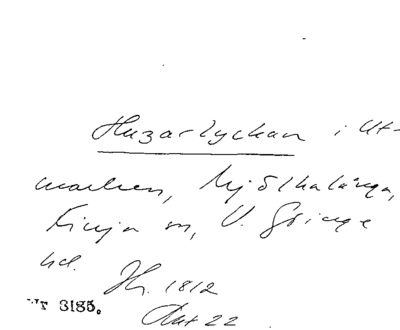 Huzarlyckan i Ut-
marken, Mjölkalånga,
Finja sn, V. Göinge
hd. Hr. 1812
Nr 3185.
Akt 22